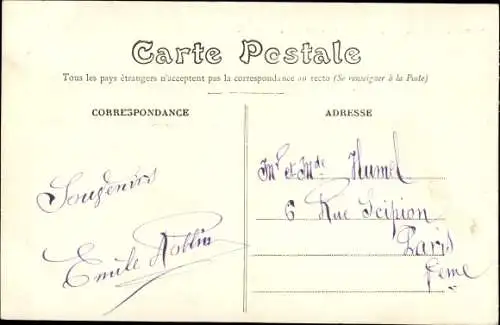 Carte Postale
Tous les pays étrangers n'acceptent pas la correspondance au recto (Se renseigner à la Poste)
CORRESPONDANCE
ADRESSE
Souvenirs
Emile
Mr et Mde Humel
6 Rue Scipion
Paris